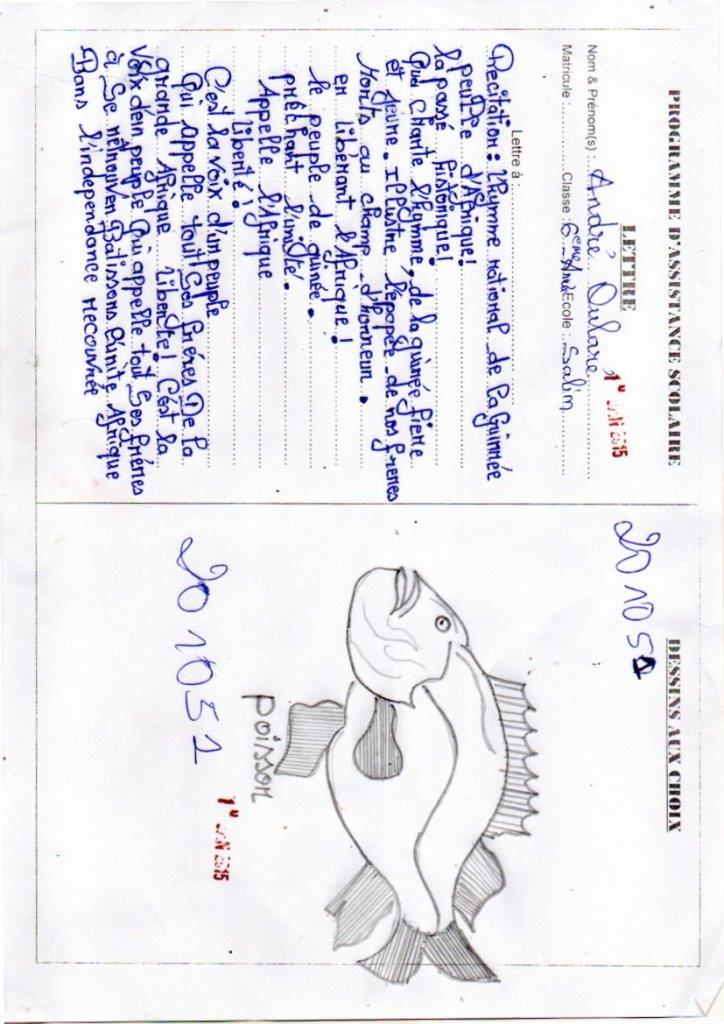 PROGRAMME D'ASSISTANCE SCOLAIRE
LETTRE
Nom & Prénom(s) : André Oularé
Matricule : Classe : 6ème Année Ecole : Salim
Lettre à :
Recitation : L'hymne national de la Guinnée
peuple d'Afrique!
la passé historique!
Que chante l'hymme, de la guinée fiere
et jeune. Illustre l'épopée de nos freres
Morts au champ d'honneur.
en libérant l'Afrique!
le peuple de guinée.
prêchant l'unité.
Appelle l'Afrique
liberté!
C'est la voix d'un peuple
Qui appelle tout Ses frères De la
grande Afrique. liberté! C'est la
voix d'en peuple Qui appelle tout Ses frères
à Se retrouver Batissons l'unité Afrique
Dans l'independance recouvrée
DESSINS AUX CHOIX
201051
poisson
201051
2015
2015